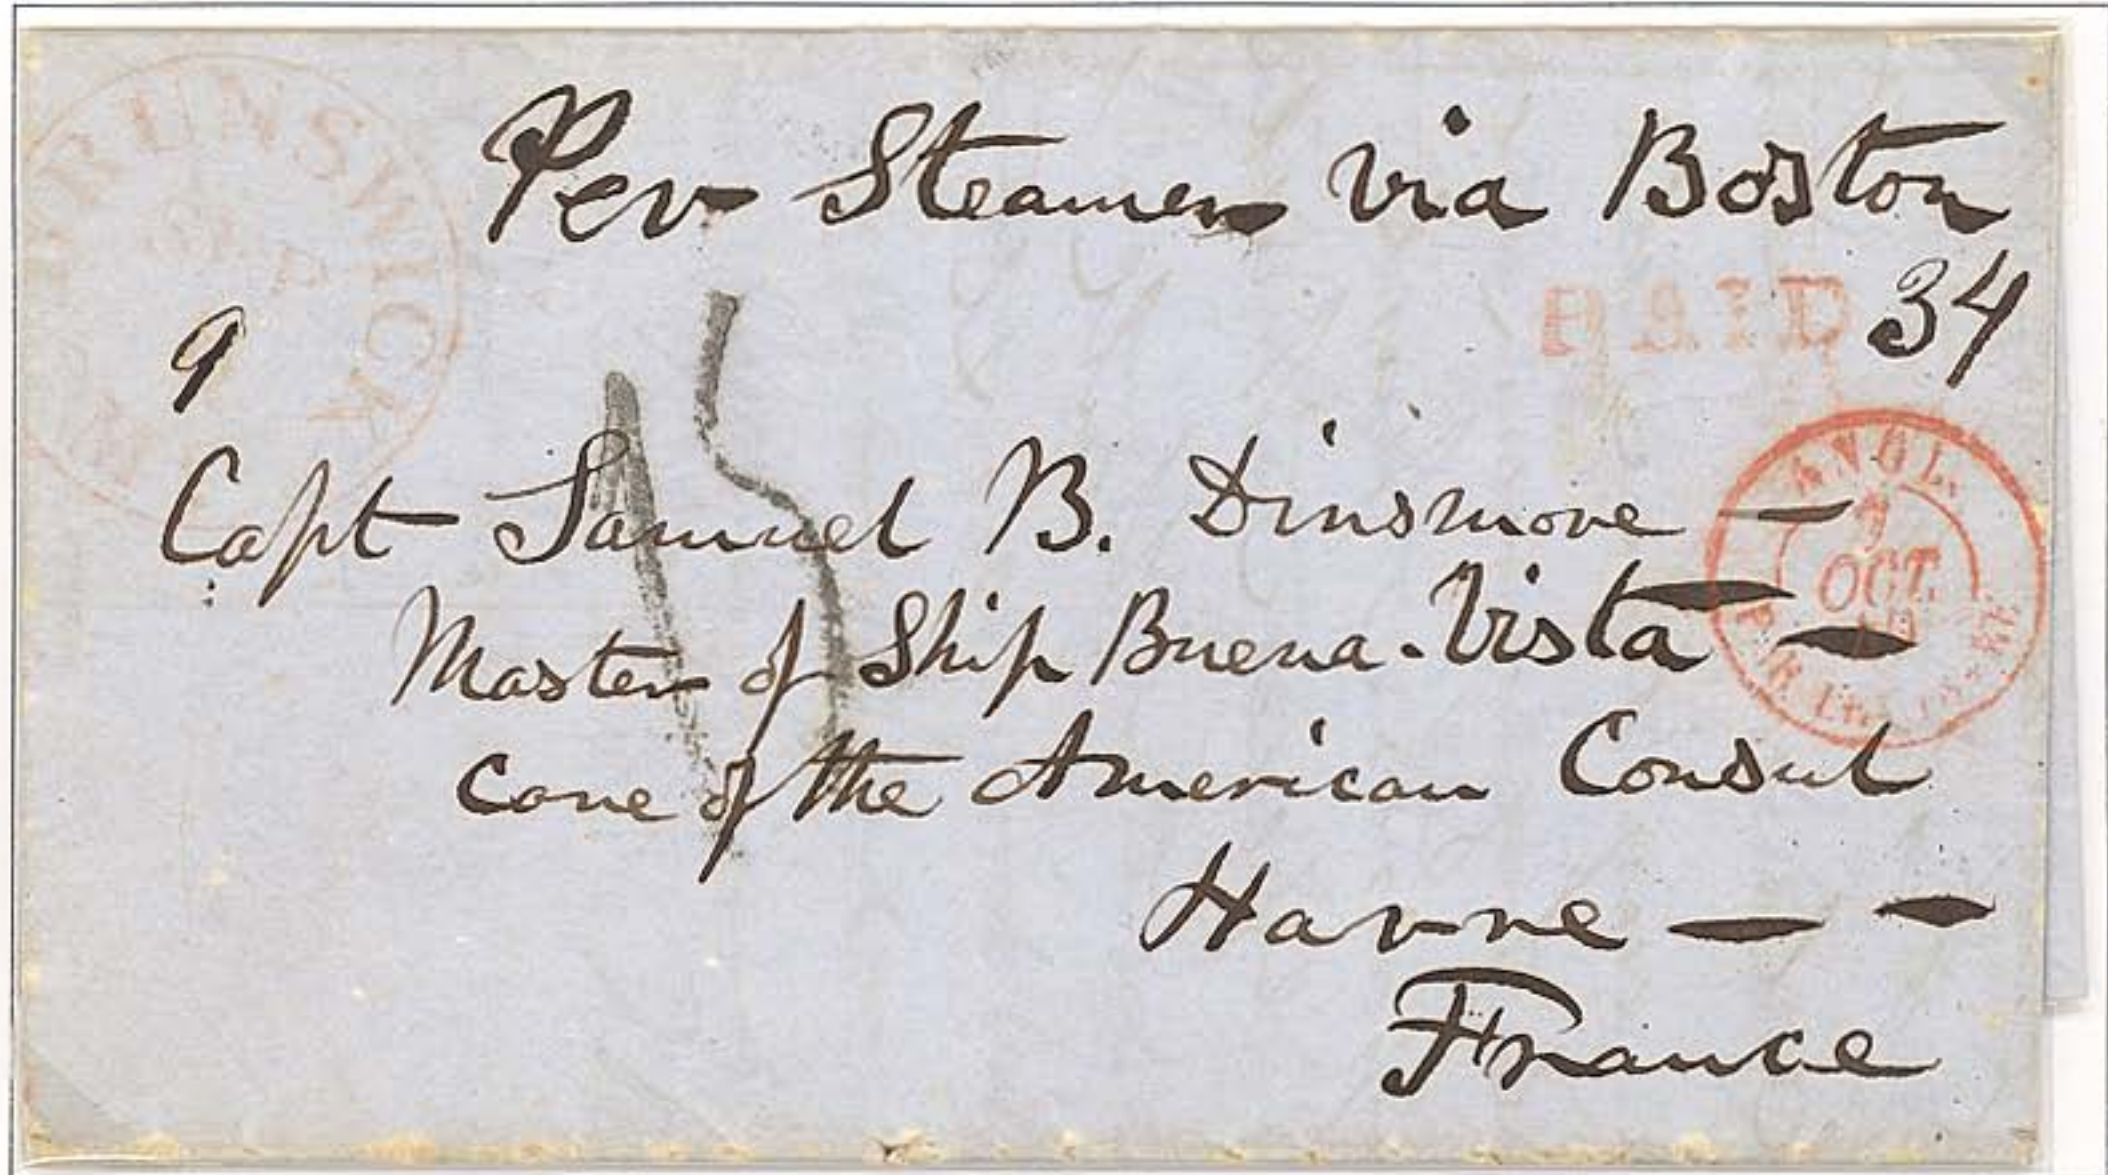 BRUNSWICK
SEP
Per Steamer via Boston
PAID 34
9
15
ANGL.
7
OCT.
Capt Samuel B. Dinsmore —
Master of Ship Buena-Vista —
Care of the American Consul
Havre — —
France